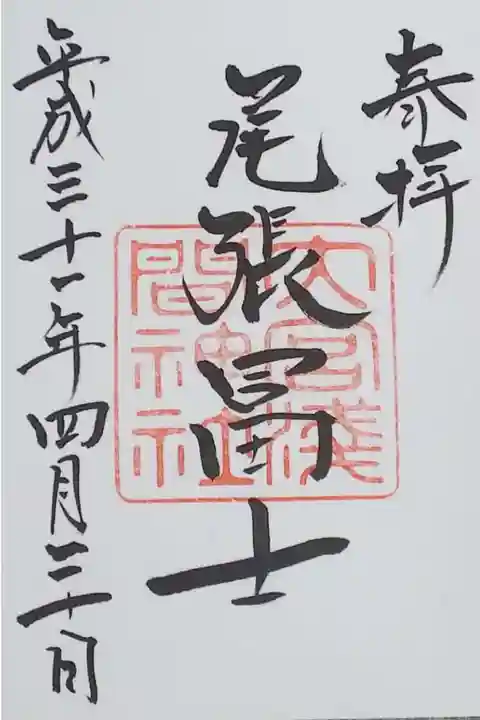 奉拝
尾張冨士
大宮浅間神社
平成三十一年四月三十日